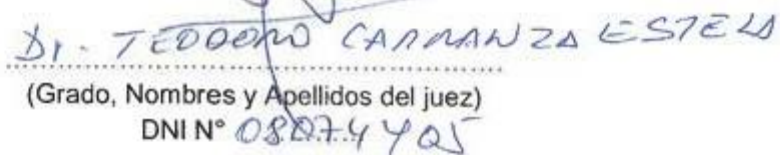 Dr. TEODORO CARRANZA ESTELA
(Grado, Nombres y Apellidos del juez)
DNI N° 08074405